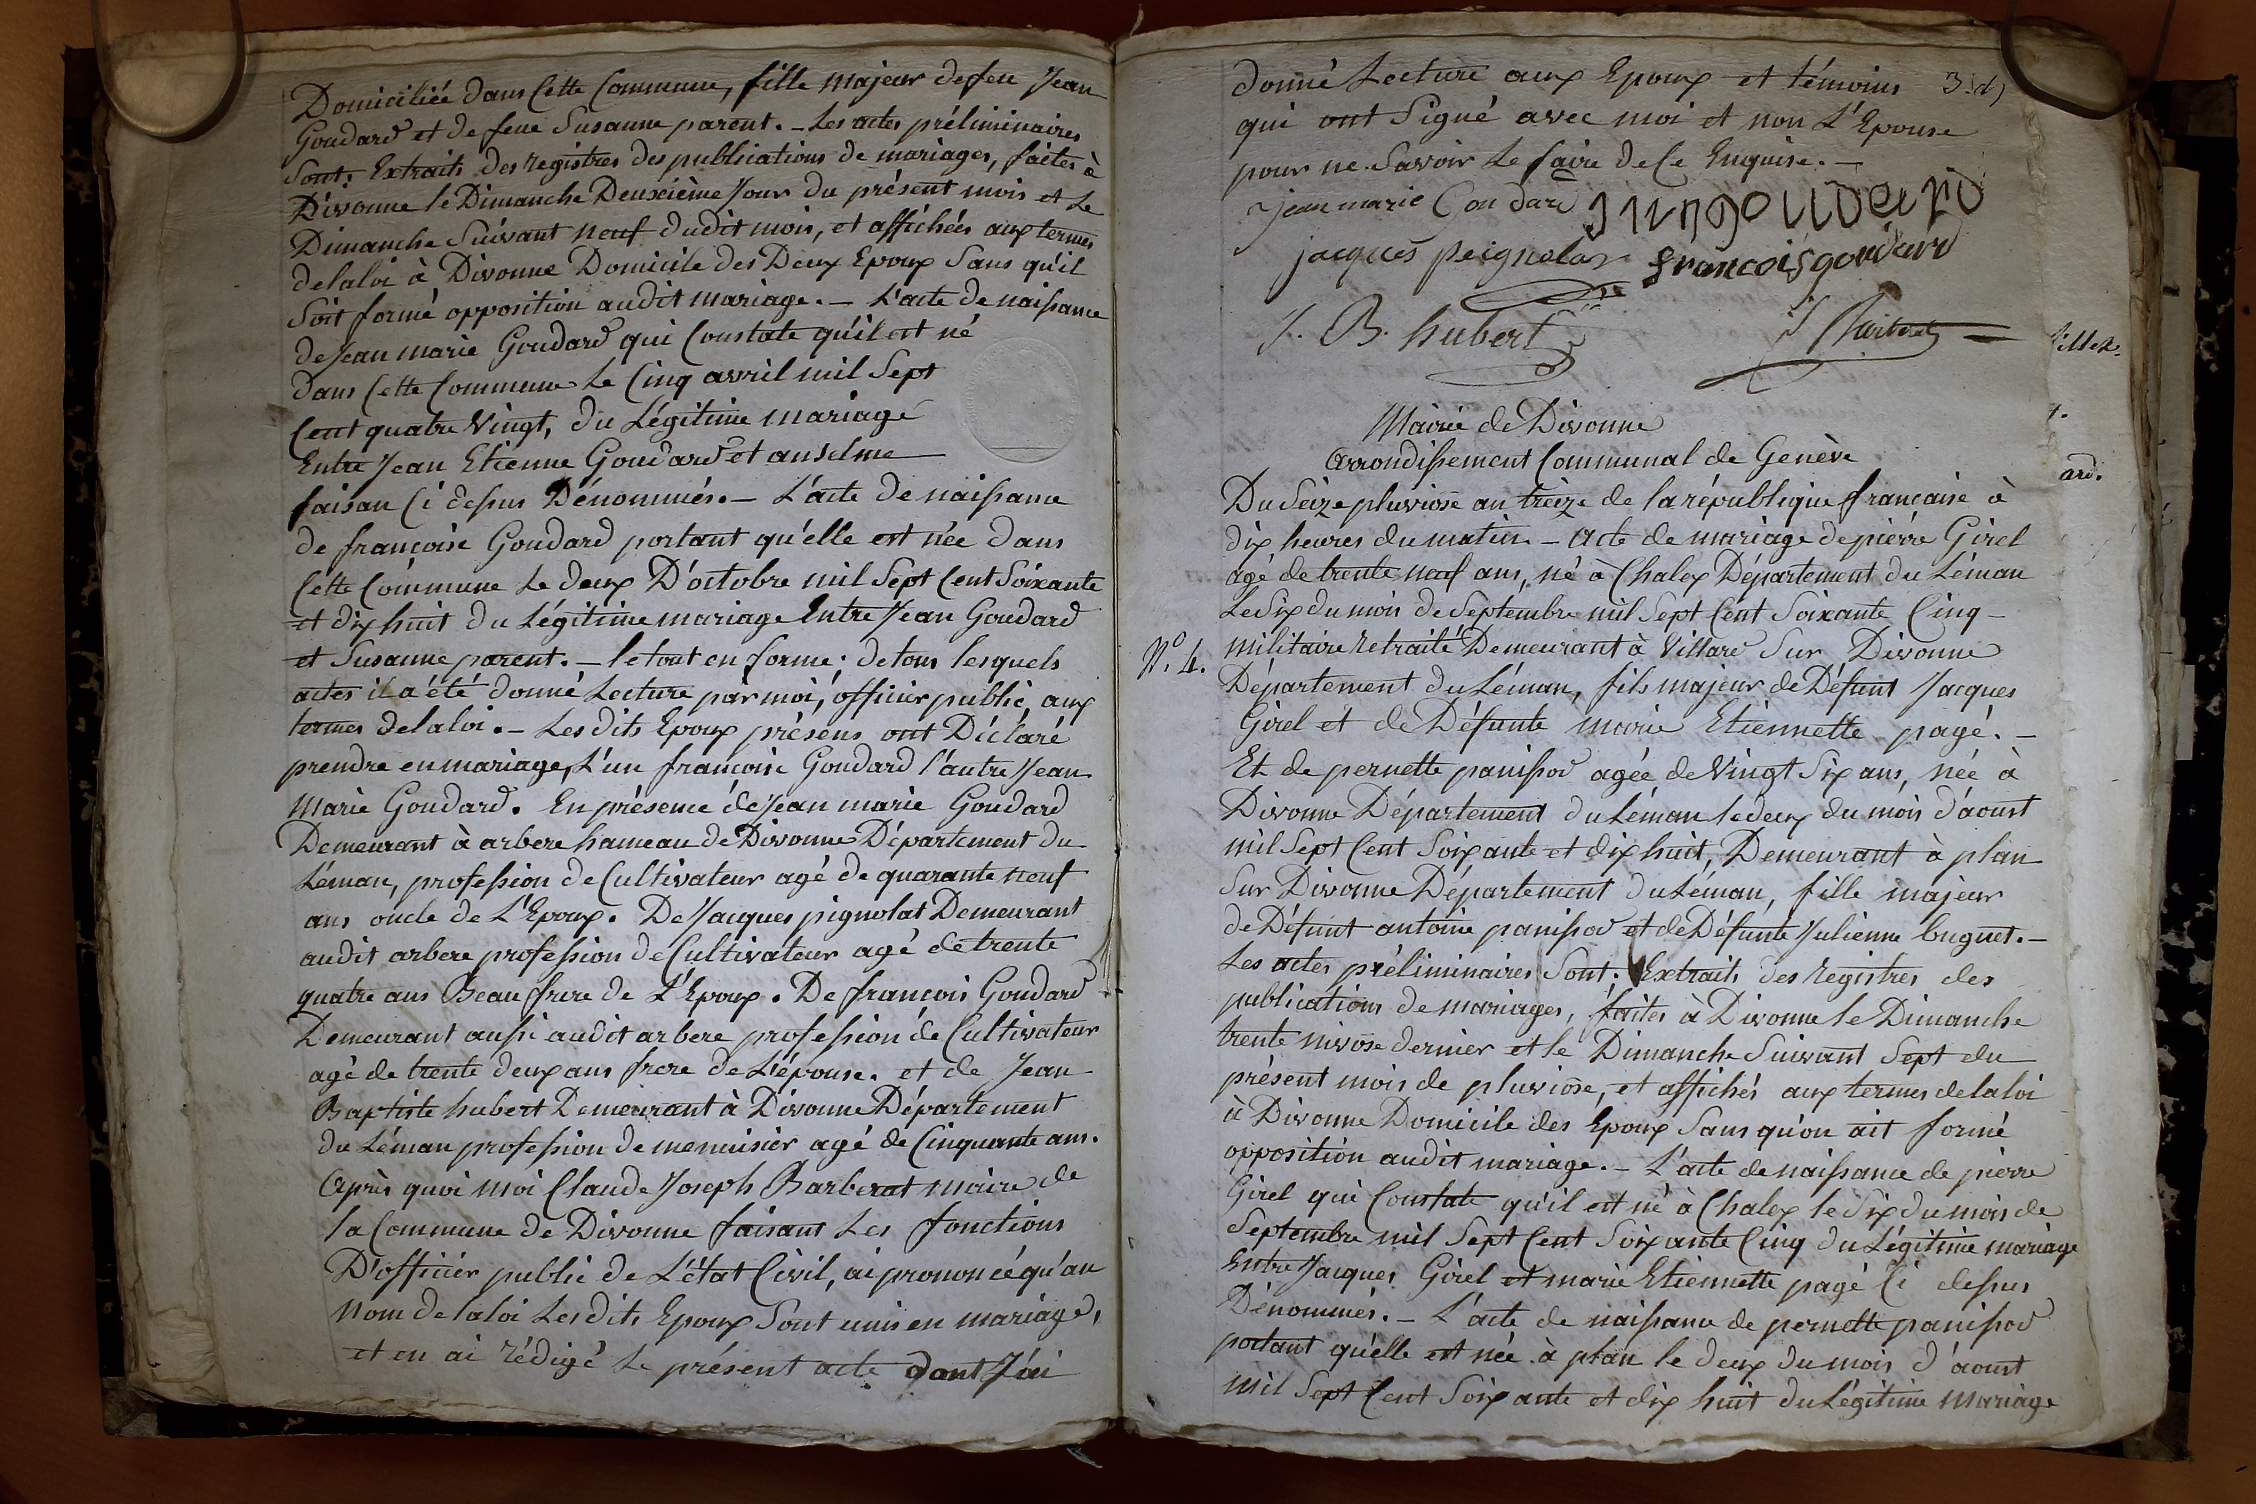 Domiciliée dans Cette Commune, fille majeur de feu Jean
Goudard et de feue Susanne parent. - Les actes préliminaires
Sont: Extraits des registres des publications de mariages, faites à
Divonne le Dimanche Deuxième Jour du présent mois et Le
Dimanche Suivant neuf dudit mois, et affichées aux termes
de la loi à Divonne Domicile des Deux Epoux Sans qu'il
Soit formé opposition audit mariage. - L'acte de naissance
de Jean marie Goudard qui Constate qu'il est né
dans Cette Commune Le Cinq avril mil Sept
Cent quatre Vingt, du Légitime mariage
Entre Jean Etienne Goudard et anselme
faisan Ci dessus Dénommés. - L'acte de naissance
de francoise Goudard portant qu'elle est née dans
Cette Commune Le deux D'octobre mil Sept Cent Soixante
et dix huit du Légitime mariage Entre Jean Goudard
et Susanne parent. - le tout en forme: de tous lesquels
actes il a été donné Lecture par moi, officier public, aux
termes de la loi. - Les dits Epoux présens ont Déclaré
prendre en mariage, L'un francoise Goudard l'autre Jean
Marie Goudard. En présence de Jean marie Goudard
Demeurant à arbere hameau de Divonne Département du
Léman, profession de Cultivateur agé de quarante neuf
ans oncle de L'Epoux. De Jacques pignolat Demeurant
audit arbere profession de Cultivateur agé de trente
quatre ans Beau frere de L'Epoux. De francois Goudard
Demeurant aussi audit arbere profession de Cultivateur
agé de trente deux ans frere de L'épouse. et de Jean
Baptiste hubert Demeurant à Divonne Département
du Léman profession de menuisier agé de Cinquante ans.
Après quoi moi Claude Joseph Barberat maire de
la Commune de Divonne faisant Les fonctions
D'officier public de L'état Civil, ai prononcé qu'au
Nom de la loi Les dits Epoux Sont unis en mariage,
et en ai rédigé Le présent acte dont J'ai
donné Lecture aux Epoux et témoins
qui ont Signé avec moi et non L'Epouse
pour ne Savoir Le faire de Ce Enquise. -
jean marie Goudard
jacques peignolat francois goudard
J. B. hubert
Mairie de Divonne
Arrondissement Communal de Genève
Du Seize pluviose an treize de la république francaise à
dix heures du matin - Acte de mariage de pierre Girel
agé de trente neuf ans, né à Chalex Département du Léman
Le Six du mois de Septembre mil Sept Cent Soixante Cinq -
N.º 4. militaire Retraité Demeurant à Villard Sur Divonne
Département du Léman, fils majeur de Défunt Jacques
Girel et de Défunte marie Etiennette pagé. -
Et de pernette panissod agée de Vingt Six ans, née à
Divonne Département du Léman le deux du mois d'aoust
mil Sept Cent Soixante et dix huit, Demeurant à plan
Sur Divonne Département du Léman, fille majeur
de Défunt antoine panissod et de Défunte Julienne buguet. -
Les actes préliminaires Sont: Extraits des Registres des
publications de mariages, faites à Divonne le Dimanche
trente nivose dernier et le Dimanche Suivant Sept du
présent mois de pluviose, et affichés aux termes de la loi
à Divonne Domicile des Epoux Sans qu'on ait formé
opposition audit mariage. - L'acte de naissance de pierre
Girel qui Constate qu'il est né à Chalex le Six du mois de
Septembre mil Sept Cent Soixante Cinq du Légitime mariage
Entre Jacques Girel et marie Etiennette pagé Ci dessus
Dénommés. - L'acte de naissance de pernette panissod
portant qu'elle est née à plan le deux du mois d'aoust
mil Sept Cent Soixante et dix huit du Légitime Mariage